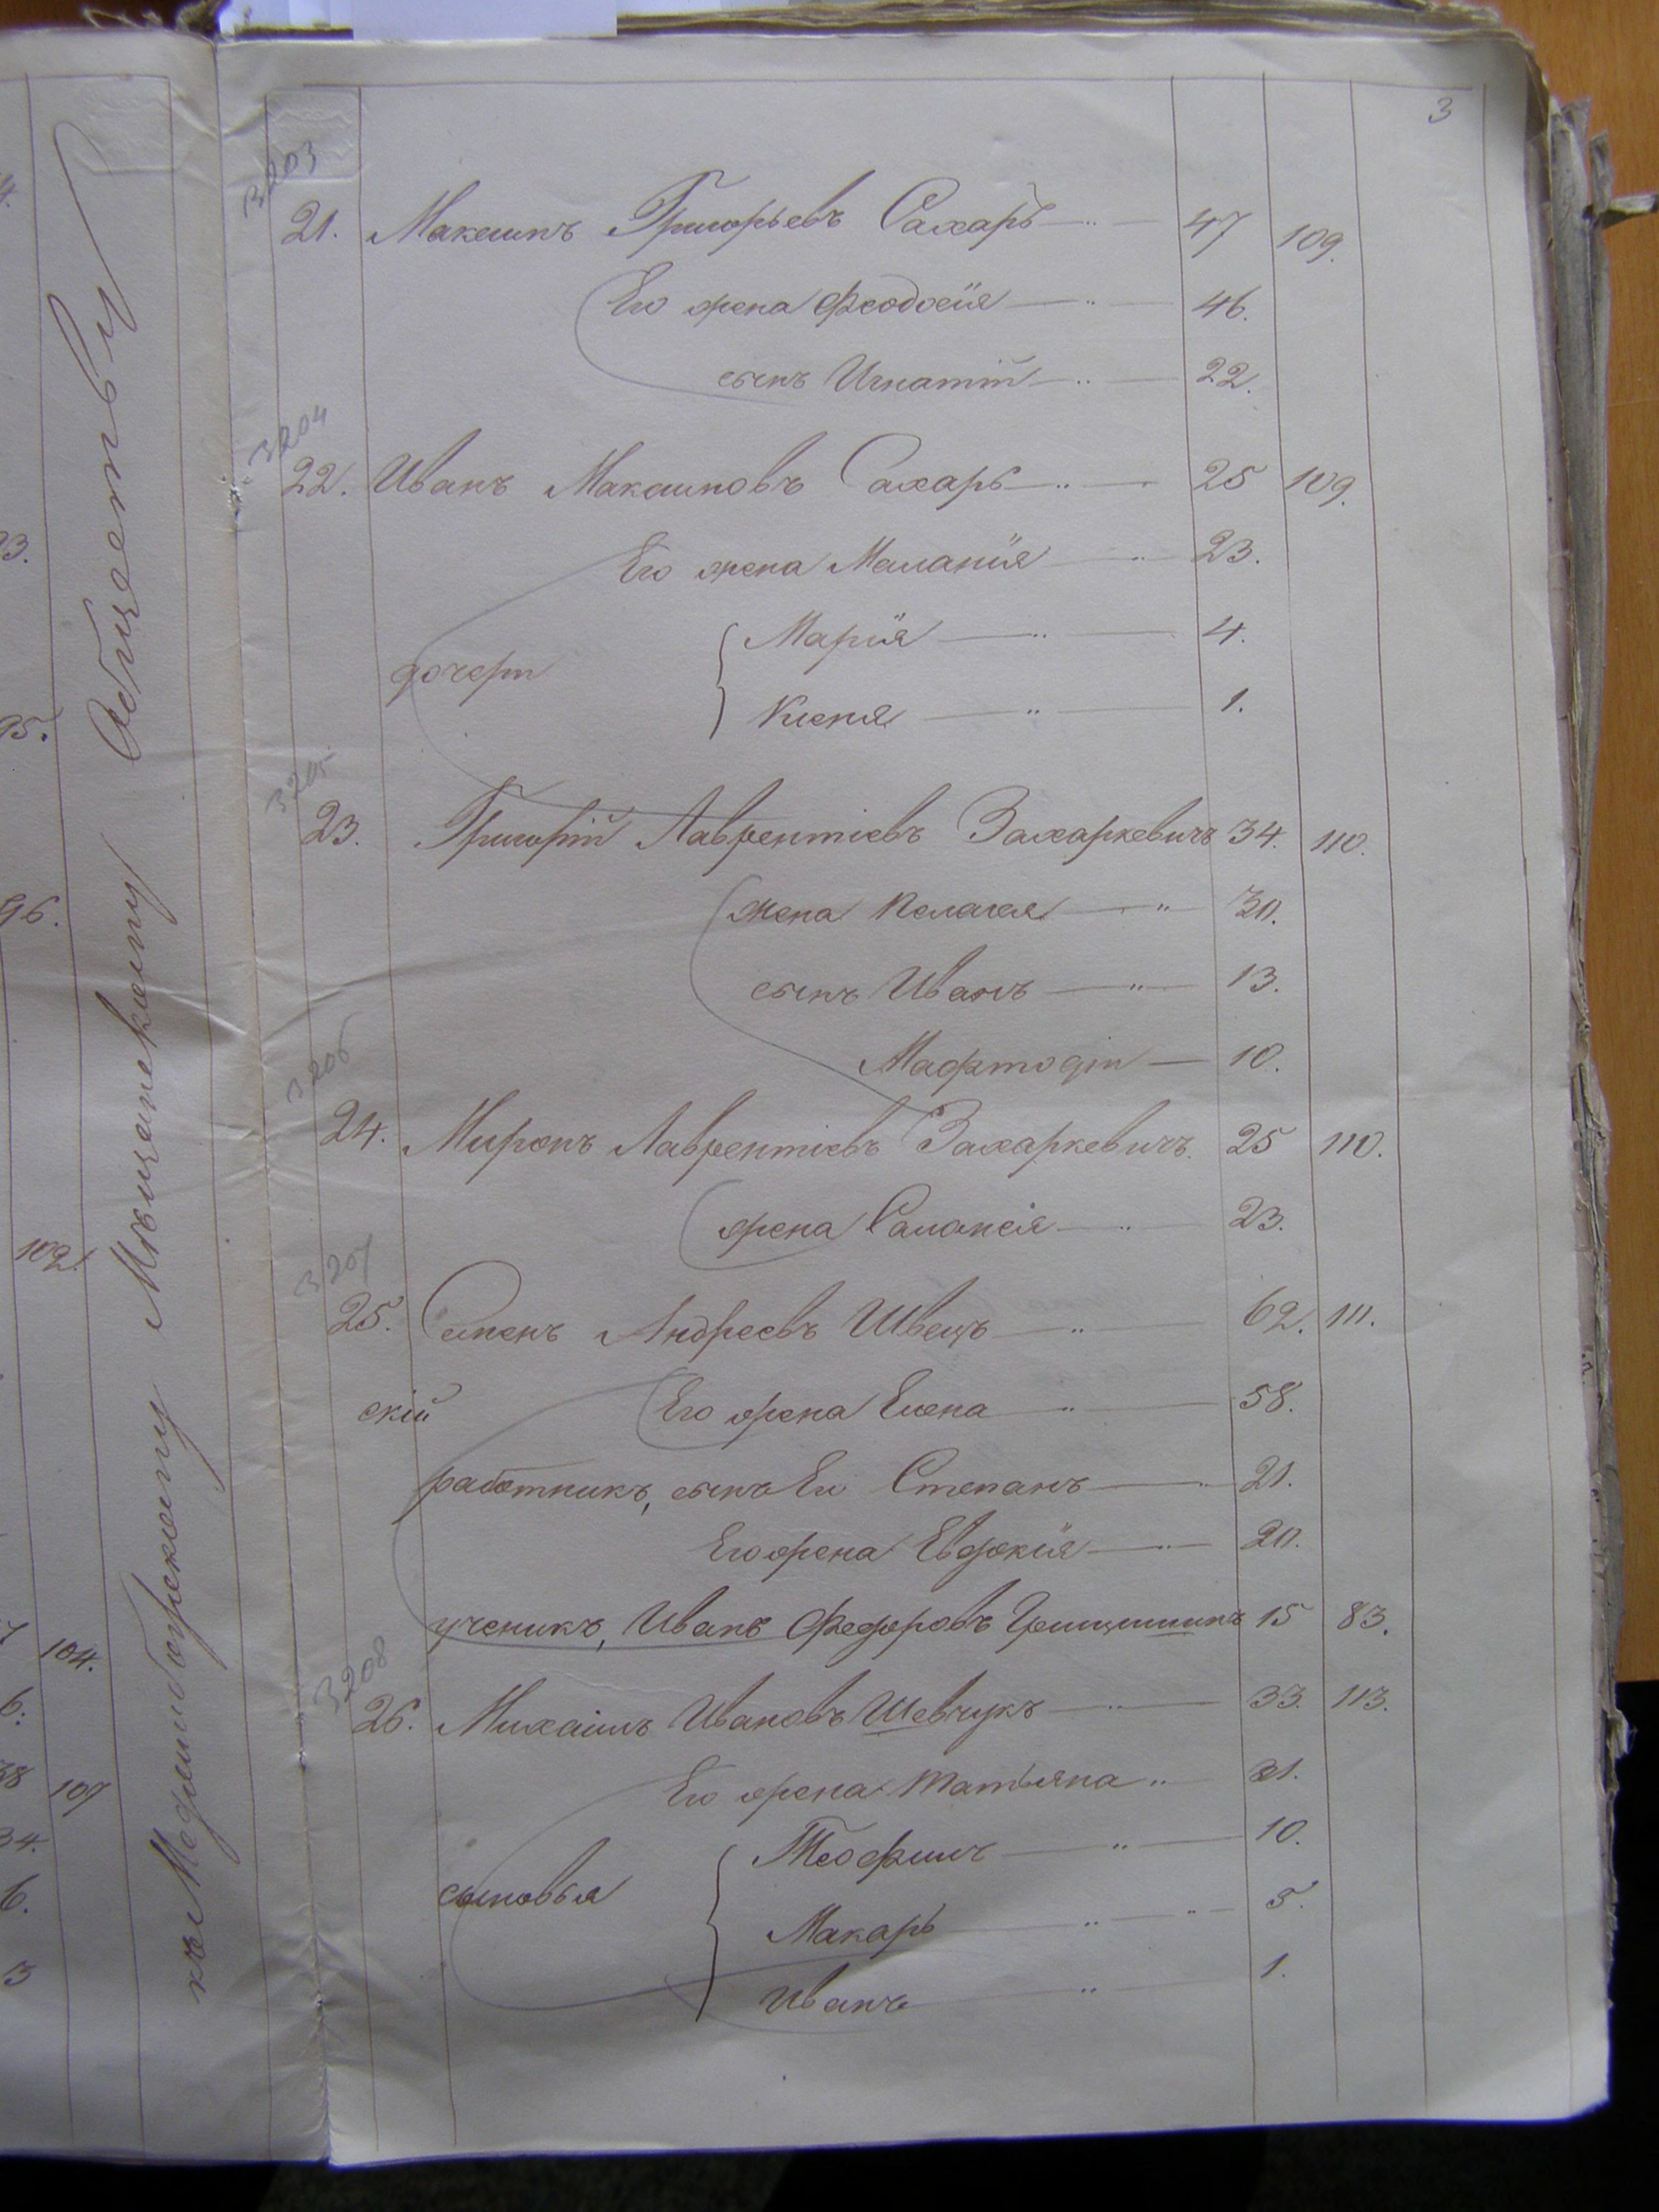 3
3203
21. Максимъ Григорьевъ Сахаръ 47 109.
Его жена Феодосія 46.
сынъ Игнатій 22.
3204
22. Иванъ Максимовъ Сахаръ 25 109.
Его жена Маланія 23.
дочери Марія 4.
Ксенія 1.
3205
23. Григорій Лаврентіевъ Захаркевичъ 34. 110.
жена Пелагея 30.
сынъ Иванъ 13.
10.
3206
24. Миронъ Лаврентіевъ Захаркевичъ. 25 110.
жена 23.
3207
25. Семенъ Андреевъ Швецъ 62. 111.
скій Его жена Елена 58.
работникъ, сынъ Его Степанъ 21.
Его жена Евдокія 20.
ученикъ, Иванъ Федоровъ 15 83.
3208
26. Михаилъ Ивановъ Шевчукъ 33. 113.
Его жена Татьяна 31.
сыновья Теофилъ 10.
Макаръ 5.
Иванъ 1.
95.
96.
102.
104.
109
34.
6.
3
къ Меджибожскому Мѣщанскому Обществу